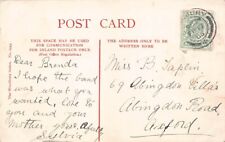 POST CARD
THIS SPACE MAY BE USED
FOR COMMUNICATION
FOR INLAND POSTAGE ONLY.
(Post Office Regulations)
THE ADDRESS ONLY TO BE
WRITTEN HERE
BURY
Dear Brenda
I hope the band
was what you
wanted, love to
you and your
Mother yours
Miss B.
69 Abingdon Villa's
Abingdon Road
Oxford.